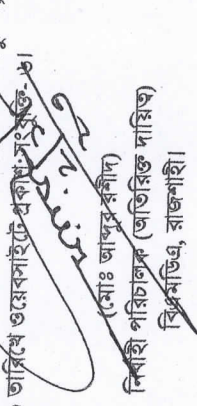 তারিখে ওয়েবসাইটে প্রকাশ সংযুক্ত- ৬।
(মোঃ আব্দুর রশীদ)
নির্বাহী পরিচালক (অতিরিক্ত দায়িত্ব)
বিএমডিএ, রাজশাহী।